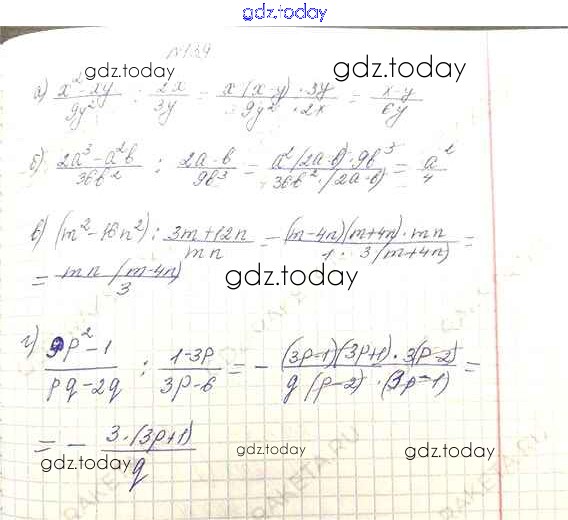 gdz.today
№139
gdz.today gdz.today
а) (x² - xy)/(9y²) : 2x/3y = (x(x-y)·3y)/(9y²·2x) = (x-y)/(6y)
б) (2a³-a²b)/(36b²) : (2a-b)/(9b³) = (a²(2a-b)·9b³)/(36b²·(2a-b)) = a²/4
в) (m²-16n²) : (3m+12n)/(mn) = ((m-4n)(m+4n)·mn)/(1·3(m+4n)) =
= (mn(m-4n))/3
gdz.today gdz.today
г) (9p²-1)/(pq-2q) : (1-3p)/(3p-6) = - ((3p-1)(3p+1)·3(p-2))/(q(p-2)·(3p-1)) =
= - (3·(3p+1))/q
gdz.today gdz.today gdz.today
RAKETA.RU